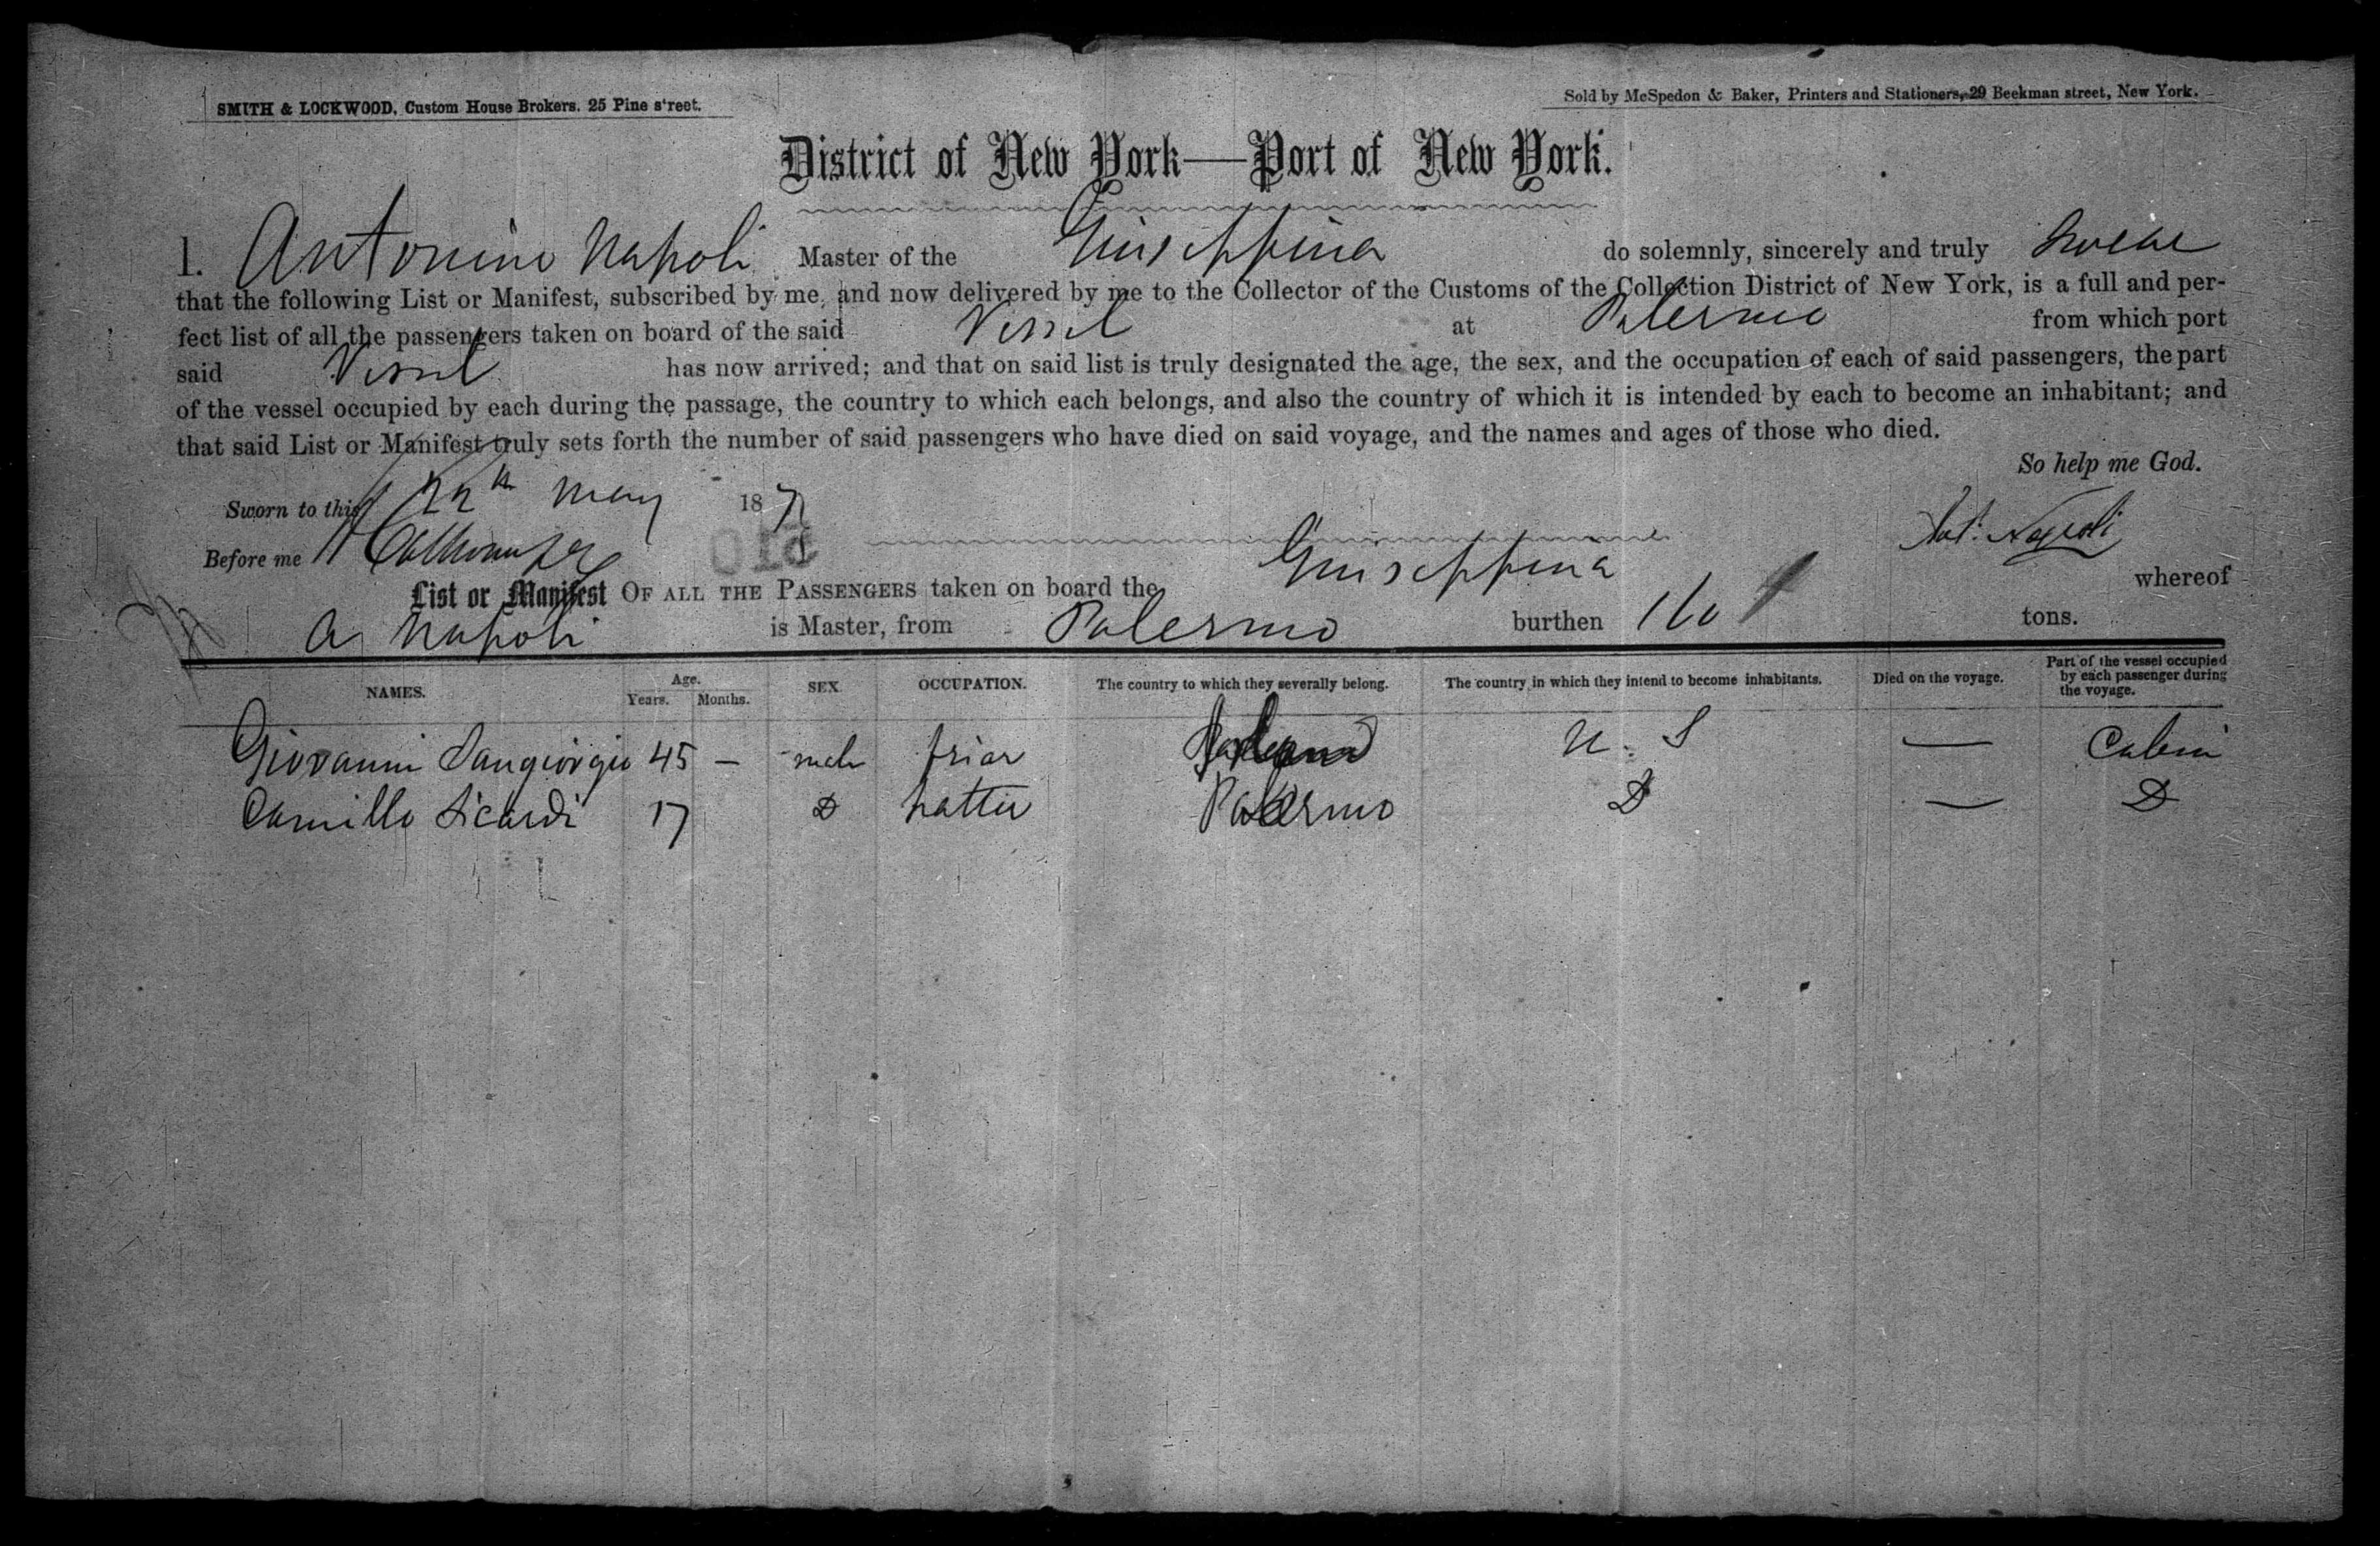 SMITH & LOCKWOOD, Custom House Brokers. 25 Pine street.
Sold by McSpedon & Baker, Printers and Stationers, 29 Beekman street, New York.
District of New York—Port of New York.
I. Antonino Napoli Master of the Guiseppina do solemnly, sincerely and truly Swear
that the following List or Manifest, subscribed by me, and now delivered by me to the Collector of the Customs of the Collection District of New York, is a full and per-
fect list of all the passengers taken on board of the said Vessel at Palermo from which port
said Vessel has now arrived; and that on said list is truly designated the age, the sex, and the occupation of each of said passengers, the part
of the vessel occupied by each during the passage, the country to which each belongs, and also the country of which it is intended by each to become an inhabitant; and
that said List or Manifest truly sets forth the number of said passengers who have died on said voyage, and the names and ages of those who died.
So help me God.
Sworn to this 22th May 187
Before me
Ant. Napoli
List or Manifest OF ALL THE PASSENGERS taken on board the Guiseppina whereof
A Napoli is Master, from Palermo burthen tons.
NAMES. Age. Years. Months. SEX. OCCUPATION. The country to which they severally belong. The country in which they intend to become inhabitants. Died on the voyage. Part of the vessel occupied by each passenger during the voyage.
Giovanni Sangiorgio 45 — male friar U. S — Cabin
Camillo Sicardi 17 Do hatter Palermo Do — Do